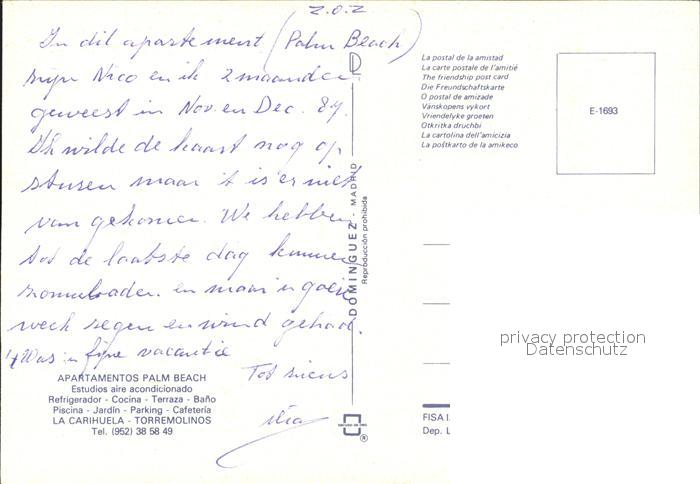 Z.O.Z
In dit apartement (Palm Beach)
zijn Nico en ik 2 maanden
geweest in Nov. en Dec. 84.
Ik wilde de kaart nog op
sturen maar 't is er niet
van gekomen. We hebben
tot de laatste dag kunnen
zonnebaden. en maar 'n goeie
week regen en wind gehad.
't Was 'n fijne vacantie
Tot ziens
APARTAMENTOS PALM BEACH
Estudios aire acondicionado
Refrigerador - Cocina - Terraza - Baño
Piscina - Jardín - Parking - Cafetería
LA CARIHUELA - TORREMOLINOS
Tel. (952) 38 58 49
DOMINGUEZ - MADRID
Reproducción prohibida
La postal de la amistad
La carte postale de l'amitié
The friendship post card
Die Freundschaftskarte
O postal de amizade
Vänskopens vykort
Vriendelyke groeten
Otkritka druchbi
La cartolina dell'amicizia
La poŝtkarto de la amikeco
E-1693
privacy protection
Datenschutz
FISA I.
Dep. L